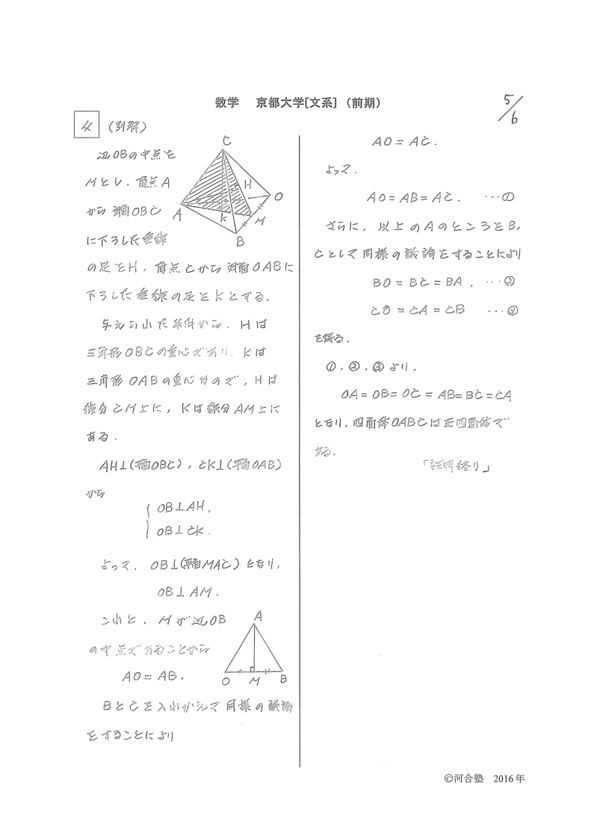 数学 京都大学[文系] (前期)
5/6
4 (別解)
辺OBの中点を
Mとし，頂点A
から平面OBC
に下ろした垂線
の足をH，頂点Cから平面OABに
下ろした垂線の足をKとする．
与えられた条件から，Hは
三角形OBCの重心であり，Kは
三角形OABの重心なので，Hは
線分CM上に，Kは線分AM上に
ある．
AH⊥(平面OBC)，CK⊥(平面OAB)
から
OB⊥AH，
OB⊥CK．
よって，OB⊥(平面MAC)となり，
OB⊥AM．
これと，Mが辺OB
の中点であることから
AO=AB．
BとCを入れかえて同様の議論
をすることにより
C
H
O
A
K
M
B
A
O
M
B
AO=AC．
よって，
AO=AB=AC． …①
さらに，以上のAのところをB，
Cとして同様の議論をすることにより
BO=BC=BA， …②
CO=CA=CB …③
を得る．
①，②，③より，
OA=OB=OC=AB=BC=CA
となり，四面体OABCは正四面体で
ある．
「証明終り」
©河合塾 2016年